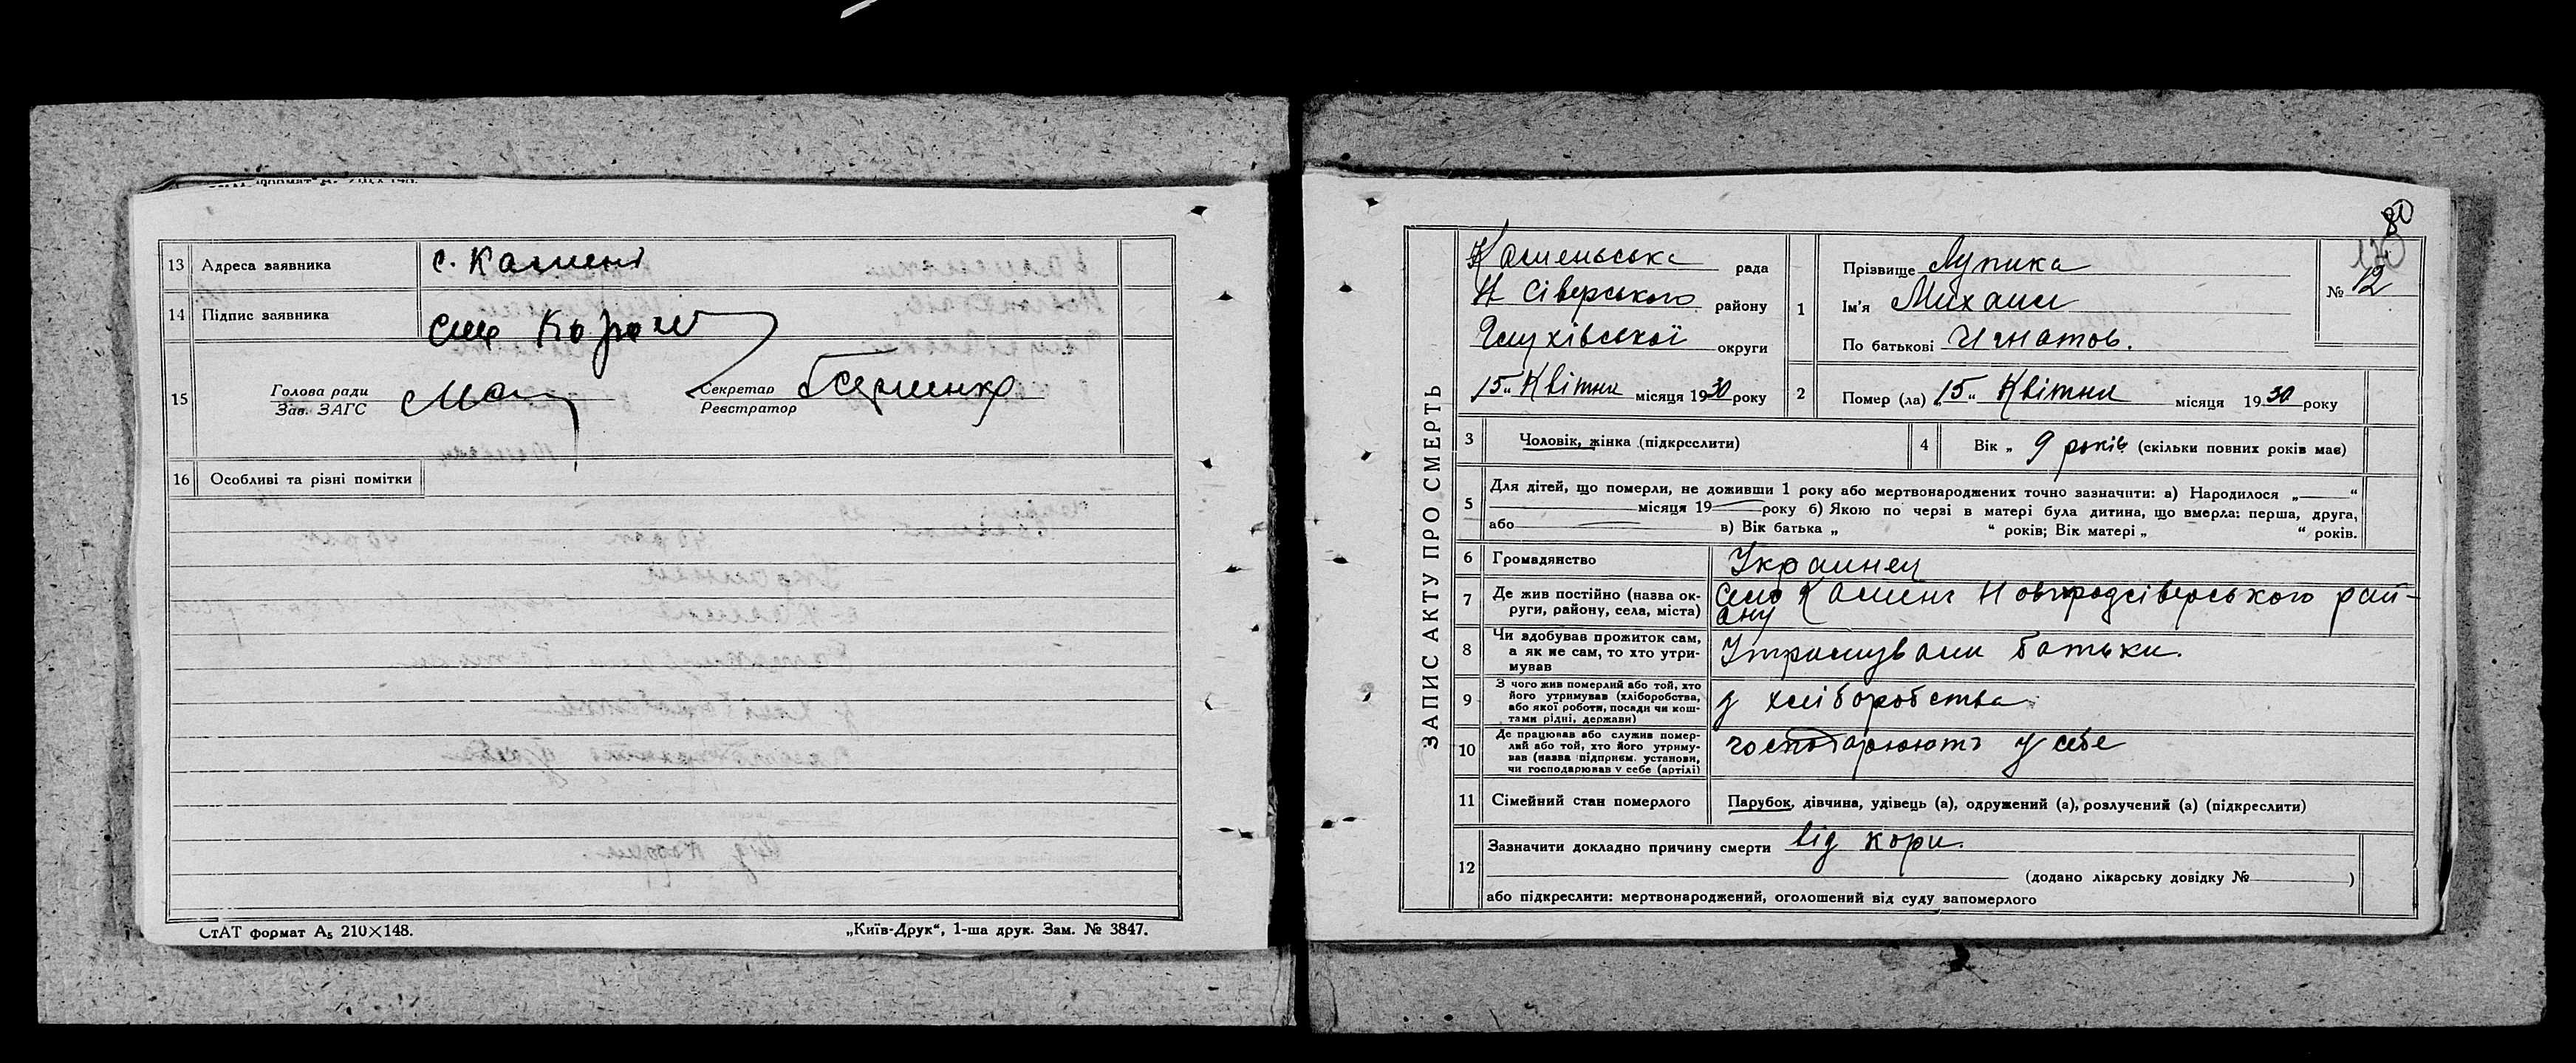 13 Адреса заявника с. Камень
14 Підпис заявника
15 Голова ради Секретар
Зав. ЗАГС Реєстратор
16 Особливі та різні помітки
СтАТ формат А5 210×148. „Київ-Друк“, 1-ша друк. Зам. № 3847.
80
130
ЗАПИС АКТУ ПРО СМЕРТЬ
Каменьська рада
Н Сіверського району
Глухівської округи
15 „ Квітня місяця 1930 року
1 Прізвище Лупика
Ім'я Михаил
По батькові Игнатов.
№ 12
2 Помер (ла) „15“ Квітня місяця 1930 року
3 Чоловік, жінка (підкреслити)
4 Вік „ 9 років (скільки повних років має)
5 Для дітей, що померли, не доживши 1 року або мертвонароджених точно зазначити: а) Народилося „ “
місяця 19 року б) Якою по черзі в матері була дитина, що вмерла: перша, друга,
або в) Вік батька „ “ років; Вік матері „ “ років.
6 Громадянство Украинец
7 Де жив постійно (назва ок-
руги, району, села, міста) Село Камень Новгородсіверського рай-
ону
8 Чи здобував прожиток сам,
а як не сам, то хто утри-
мував Утримували батьки.
9 З чого жив померлий або той, хто
його утримував (хліборобства,
або якої роботи, посади чи кош-
тами рідні, держави) з хліборобства
10 Де працював або служив помер-
лий або той, хто його утриму-
вав (назва підприєм. установи,
чи господарював у себе (артілі) господарюють у себе
11 Сімейний стан померлого Парубок, дівчина, удівець (а), одружений (а), розлучений (а) (підкреслити)
12 Зазначити докладно причину смерти від кори.
(додано лікарську довідку № )
або підкреслити: мертвонароджений, оголошений від суду запомерлого